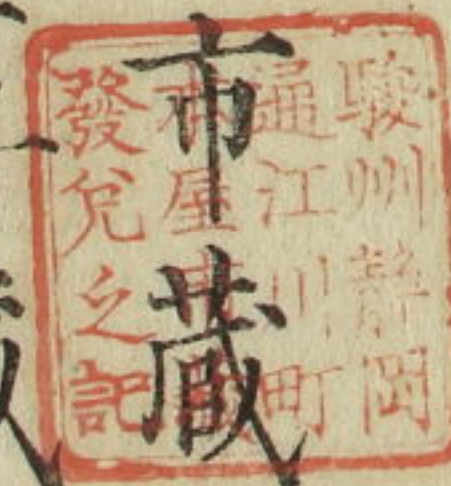 駿州靜岡
通江川町
本屋
發兌之記
市蔵